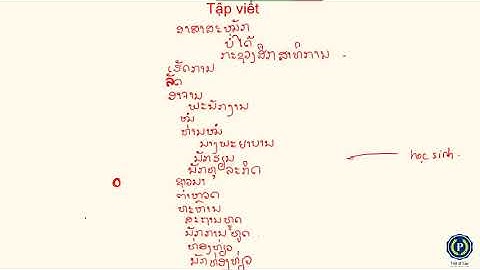 Tập viết
ອາສາສະໝັກ
ບໍ່ໄດ້
ກະຊວງສຶກສາທິການ
ເຮັດການ
ລັດ
ອາຈານ
ພະນັກງານ
ໝໍ
ທ່ານໝໍ
ນາງພະຍາບານ
ນັກຮຽນ học sinh.
ນັກທຸລະກິດ
ຊາວນາ
ຕຳຫຼວດ
ທະຫານ
ສະຖານທູດ
ນັກການທູດ
ທ່ອງທ່ຽວ
ນັກທ່ອງທ່ຽວ